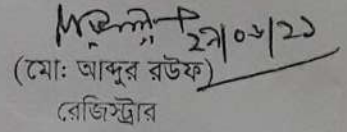 ২৭/০৮/২১
(মো: আব্দুর রউফ)
রেজিস্ট্রার